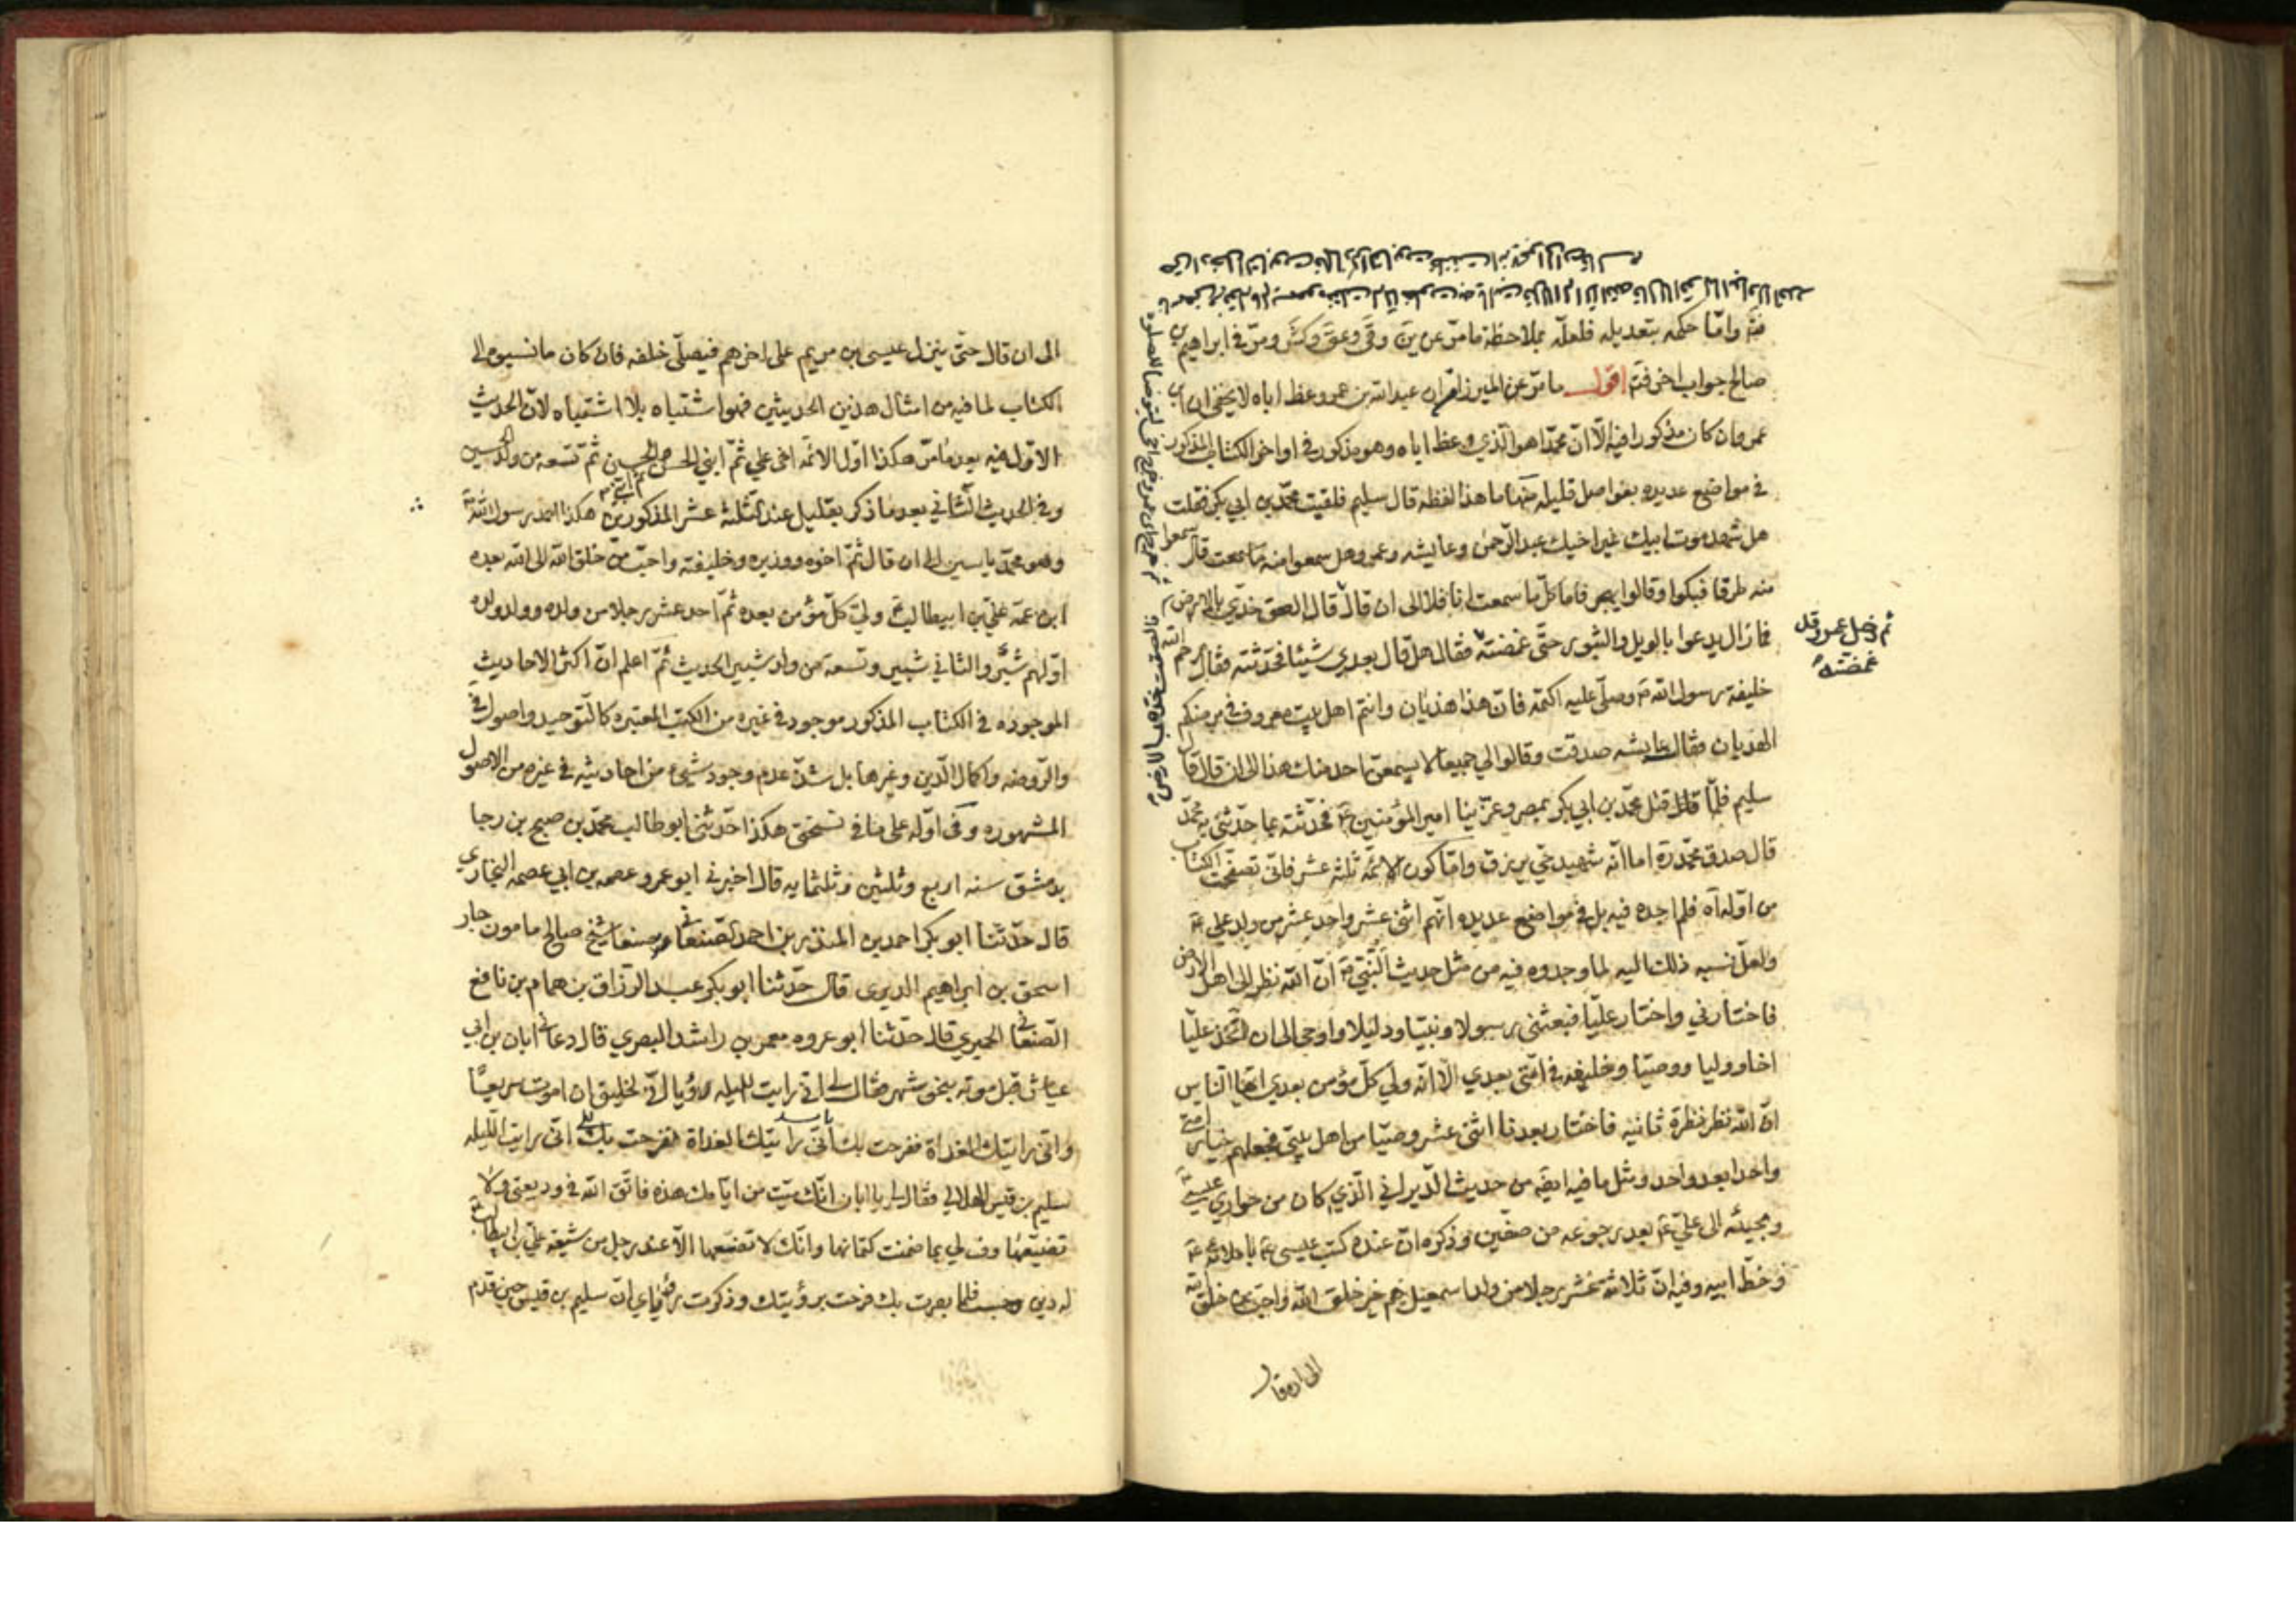 فتة وامّا حكمه بتعديله فلعلّه بملاحظة مامرّ عن ين وقي وعق وكش ومرّ في ابراهيم بن
صالح جواب اخر فتة اقول مامرّ عن الميرزا من ان عبد الله بن عمر وعظ اباه لا يخفى ان ابن
عمر وان كان مذكورا فيه الّا انّ محمّدا هو الّذي وعظ اباه وهو مذكور في اواخر الكتاب المذكور
في مواضع عديده بفواصل قليله منها ما هذا لفظه قال سليم فلقيت محمّد بن ابي بكر فقلت
هل شهد موت ابيك غير اخيك عبد الرّحمن وعايشه وعمر وهل سمعوا منه ما سمعت قال سمعوا
منه طرفا فبكوا وقالوا يهجر فاما كلّ ما سمعت انا فلا الى ان قال قال الصق خدّي بالارض
فما زال يدعوا بالويل والثبور حتّى غمضته فقال هل قال بعدي شيئا فحدّثته فقال رحم الله
خليفة رسول الله ص وصلّى عليه اكتمه فانّ هذا هذيان وانتم اهل بيت معروف في مرضكم
الهذيان فقال عايشه صدقت وقالوا لي جميعا لا يسمعنّ احد منك هذا الى ان قال قال
سليم فلمّا قتل محمّد بن ابي بكر بمصر وعزّينا امير المؤمنين ع فحدّثته بما حدّثني به محمّد
قال صدق محمّد ره اما انّه شهيد حيّ يرزق وامّا كون الائمّه ثلثه عشر فانّي تصفّحت الكتاب
من اوّله الى اخره فلم اجده فيه بل في مواضع عديده انّهم اثنى عشر واحد عشر من ولد علي ع
ولعلّ نسبه ذلك اليه لما وجدوه فيه من مثل حديث النّبيّ ص انّ الله نظر الى اهل الارض
فاختارني واختار عليّا فبعثني رسولا ونبيّا ودليلا واوحى الي ان اتّخذ عليّا
اخا ووليا ووصيّا وخليفة في امّتي بعدي الا انّه ولي كلّ مؤمن بعدي ايّها النّاس
انّ الله نظر نظرة ثانيه فاختار بعدنا اثنى عشر وصيّا من اهل بيتي فجعلهم خيار امّتي
واحدا بعد واحد ومثل ما فيه ايضا من حديث الدّيراني الّذي كان من حواري عيسى ع
ومجيئه الى عليّ ع بعد رجوعه من صفّين وذكره انّ عنده كتب عيسى ع باملائه ع
وخطّ ابيه وفيه انّ ثلاثه عشر رجلا من ولد اسمعيل هم خير خلق الله واحبّ من خلق الله
ثم دخل عمر وقد
غمضته
الى ان قال
الى ان قال حتّى ينزل عيسى بن مريم على اخرهم فيصلّي خلفه فان كان ما نسبوه الى
الكتاب لما فيه من امثال هذين الحديثين فهو اشتباه بلا اشتباه لانّ الحديث
الاوّل فيه بعد ما مرّ هكذا اوّل الائمّه اخي علي ثمّ ابني الحسن ثم الحسين ثمّ تسعه من ولد الحسين
وفي الحديث الثّاني بعد ما ذكر بقليل عند الثلثة عشر المذكورين هكذا احمد رسول الله ص
وهو محمّد ياسين الى ان قال ثمّ اخوه ووزيره وخليفته واحبّ من خلق الله الى الله بعده
ابن عمّه عليّ بن ابيطالب ع وليّ كلّ مؤمن بعده ثمّ احد عشر رجلا من ولده وولد ولده
اوّلهم شبّر والثاني شبير وتسعه من ولد شبير الحديث ثمّ اعلم انّ اكثر الاحاديث
الموجوده في الكتاب المذكور موجود في غيره من الكتب المعتبره كالتّوحيد واصول في
والرّوضه واكمال الدّين وغيرها بل شذّ عدم وجود شيء من احاديثه في غيره من الاصول
المشهوره وفي اوّله على ما في نسختي هكذا حدّثني ابو طالب محمّد بن صبيح بن رجا
بدمشق سنه اربع وثلثين وثلثمايه قال اخبرني ابو عمرو عصمه بن ابي عصمه البخاري
قال حدّثنا ابو بكر احمد بن المنذر بن احمد الصّنعاني بصنعا شيخ صالح مامون جار
اسحق بن ابراهيم الديري قال حدّثنا ابو بكر عبد الرّزاق بن همام بن نافع
الصّنعاني الحميري قال حدّثنا ابو عروه معمر بن راشد البصري قال دعاني ابان بن ابي
عياش قبل موته بنحو شهر فقال لي انّي رايت الليله رؤيا انّي لخليق ان اموت سريعا
وانّي رايتك الغداة ففرحت بك انّي رايت الليله
سليم بن قيس الهلالي فقال لي يا ابان انّك ميّت من ايّامك هذه فاتّق الله في وديعتي ولا
تضيّعها وف لي بما ضمنت كتمانها وانّك لا تضعها الّا عند رجل من شيعه عليّ بن ابيطالب ع
له دين وحسب فلمّا بصرت بك فرحت برؤيتك وذكرت رؤياي انّ سليم بن قيس حين قدم